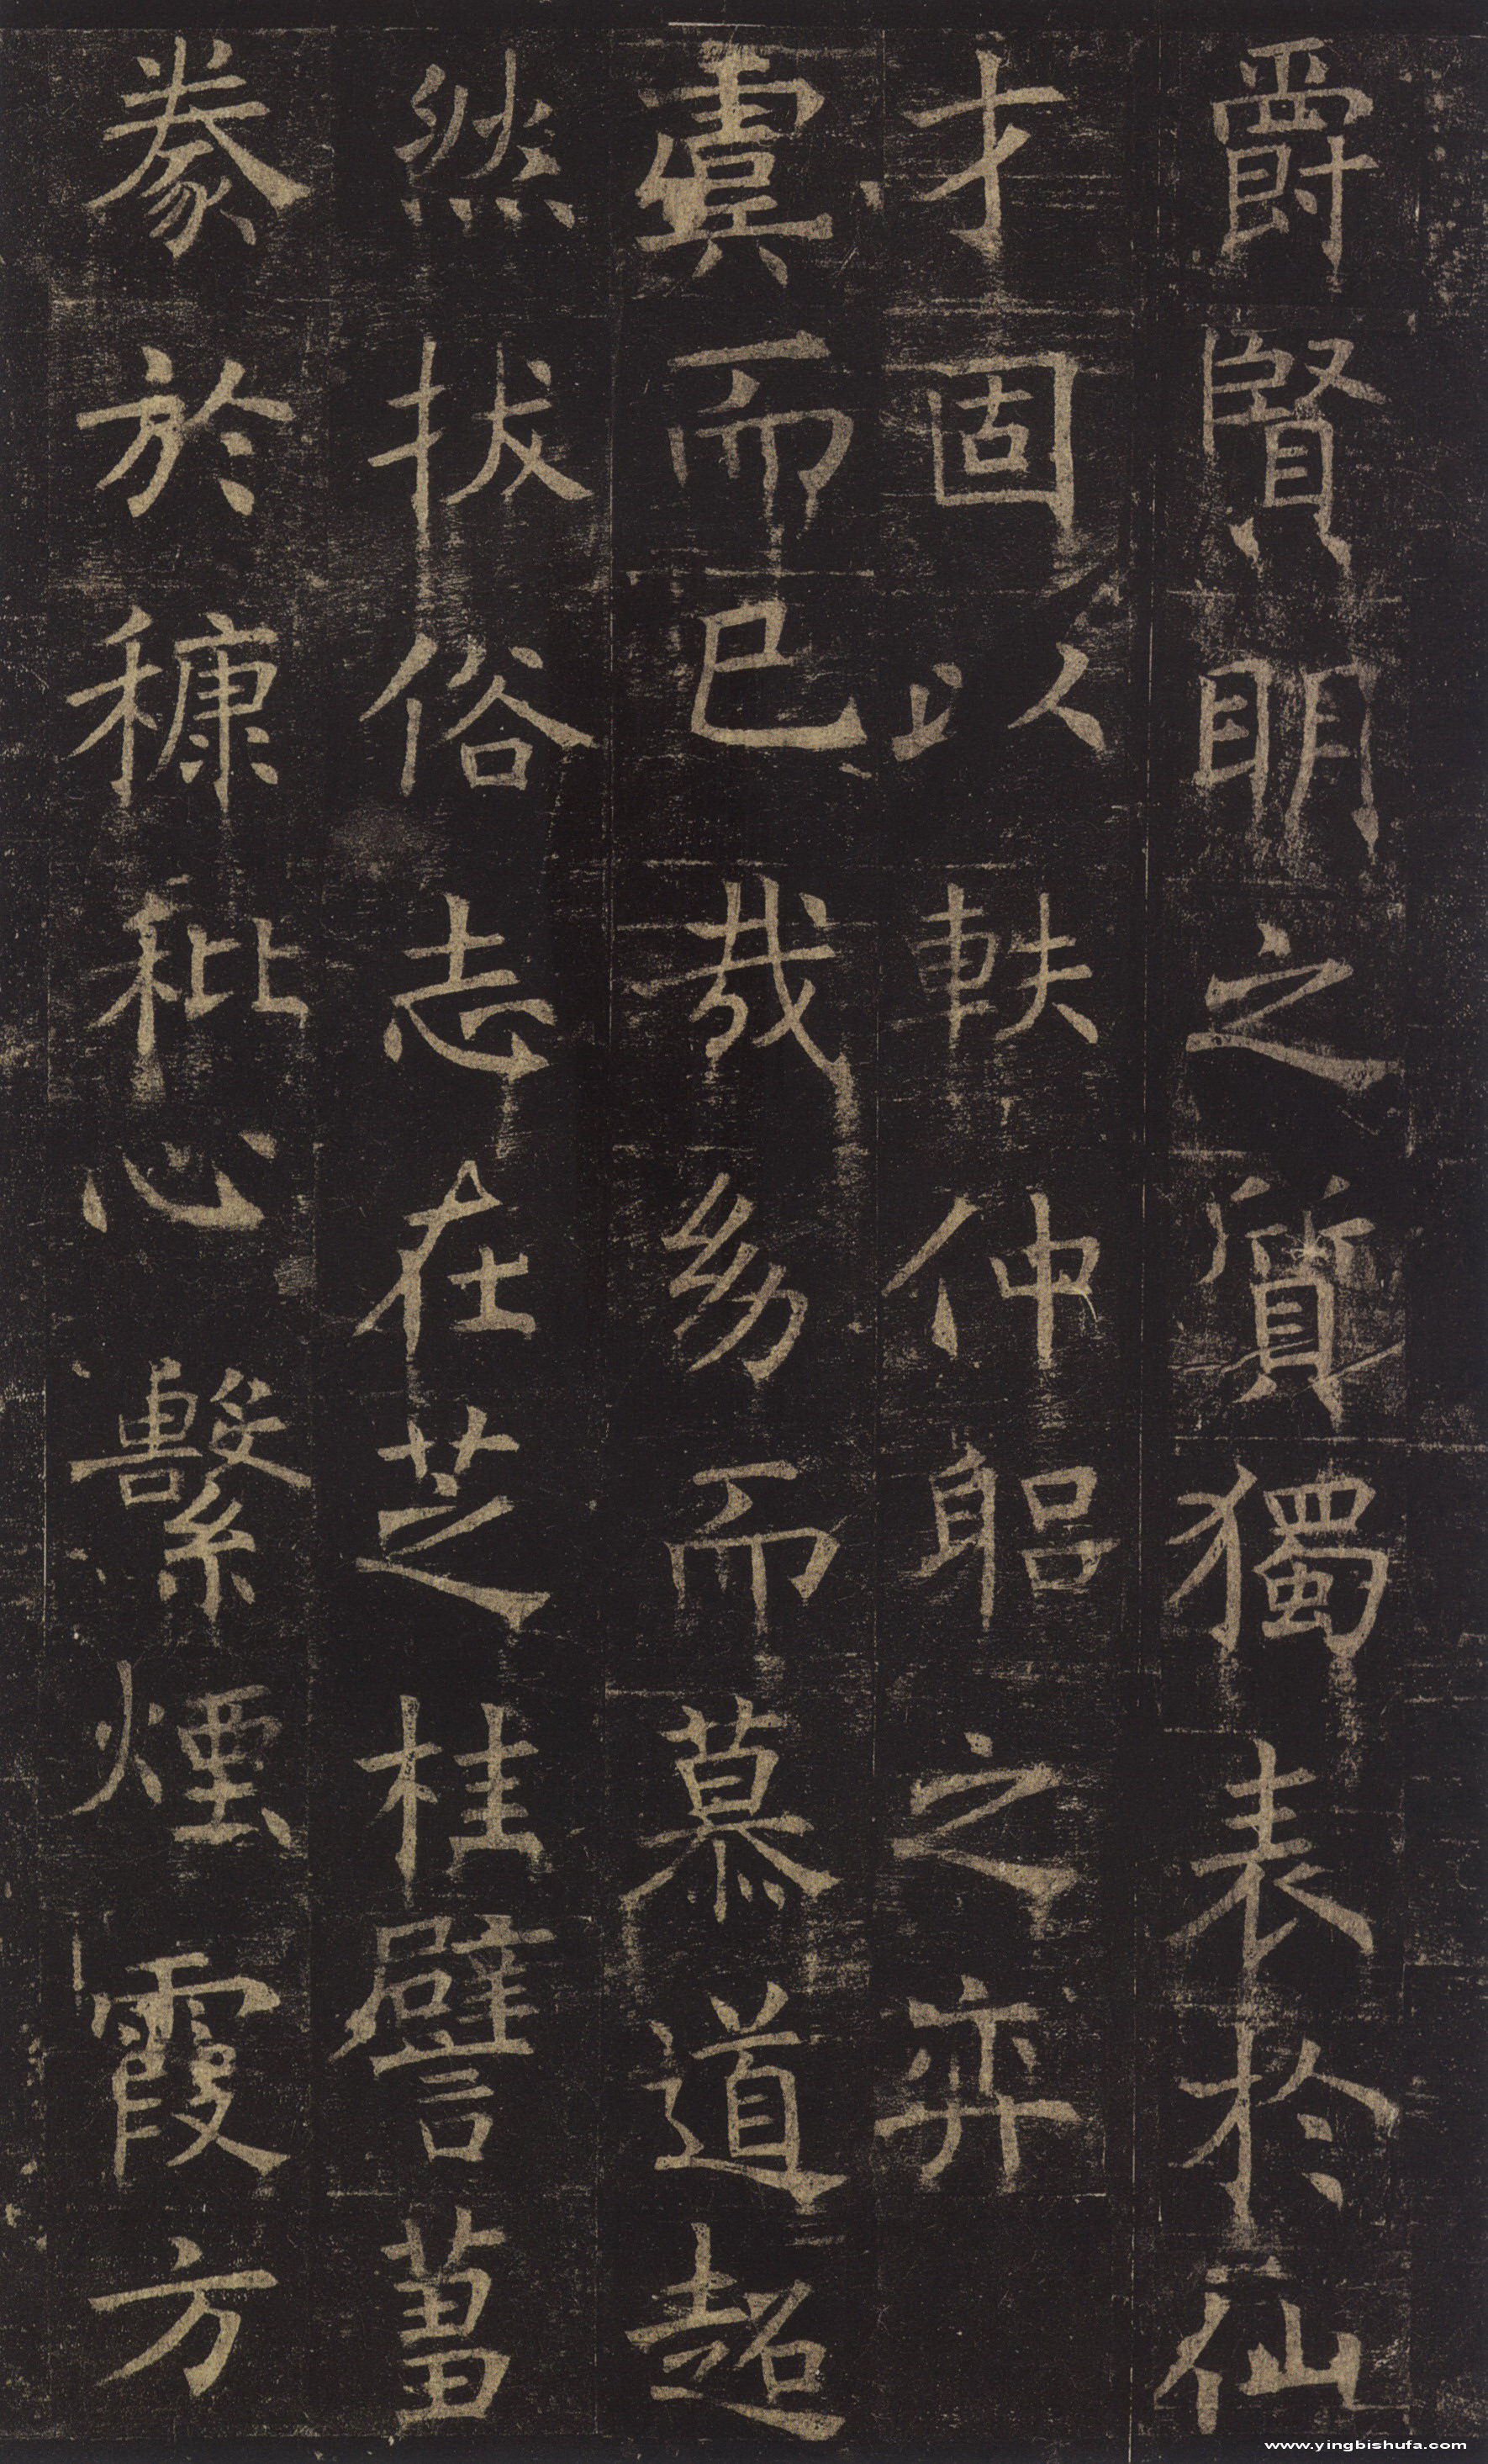 爵賢明之質獨表於仙
才固以軼仲躬之弈
寞而已哉㓜而慕道超
然拔俗志在芝桂譬蒭
豢於穅秕心繫煙霞方
www.yingbishufa.com